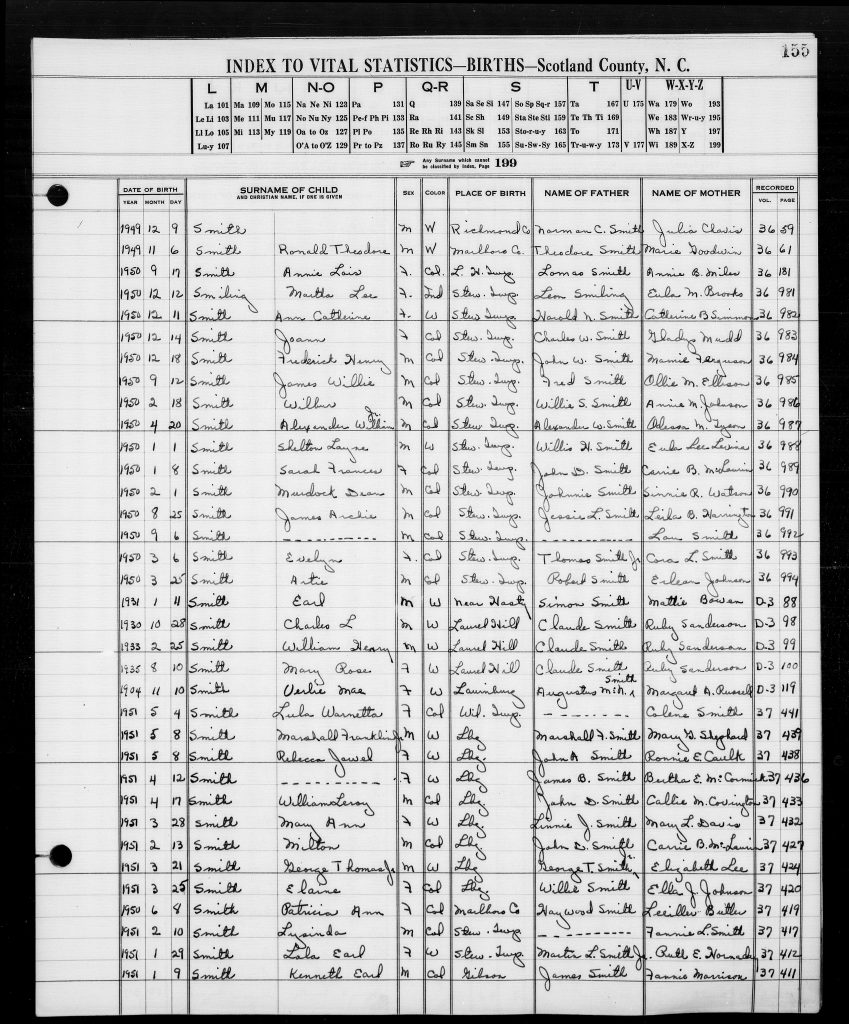 155
INDEX TO VITAL STATISTICS—BIRTHS—Scotland County, N. C.
L M N-O P Q-R S T U-V W-X-Y-Z
La 101 Ma 109 Mo 115 Na Ne Ni 123 Pa 131 Q 139 Sa Se Si 147 So Sp Sq-r 157 Ta 167 U 175 Wa 179 Wo 193
Le Li 103 Me 111 Mu 117 No Nu Ny 125 Pe-f Ph Pi 133 Ra 141 Sc Sh 149 Sta Ste Sti 159 Te Th Ti 169 We 183 Wr-u-y 195
Ll Lo 105 Mi 113 My 119 Oa to Oz 127 Pl Po 135 Re Rh Ri 143 Sk Sl 153 Sto-r-u-y 163 To 171 Wh 187 Y 197
Lu-y 107 O'A to O'Z 129 Pr to Pz 137 Ro Ru Ry 145 Sm Sn 155 Su-Sw-Sy 165 Tr-u-w-y 173 V 177 Wi 189 X-Z 199
Any Surname which cannot be classified by Index, Page 199
DATE OF BIRTH SURNAME OF CHILD SEX COLOR PLACE OF BIRTH NAME OF FATHER NAME OF MOTHER RECORDED
YEAR MONTH DAY AND CHRISTIAN NAME, IF ONE IS GIVEN VOL. PAGE
1949 12 9 Smith M W Richmond Co Norman C. Smith Julia Clavis 36 59
1949 11 6 Smith Ronald Theodore M W Marlboro Co. Theodore Smith Marie Goodwin 36 61
1950 9 17 Smith Annie Lois F. Col. L. H. Twp. Lomas Smith Annie B. Miles 36 181
1950 12 12 Smiling Martha Lee F. Ind Stew. Twp. Leon Smiling Eula M. Brooks 36 981
1950 12 11 Smith Ann Catherine F. W Stew. Twp. Harold N. Smith Catherine B Simmons 36 982
1950 12 14 Smith Joann F Col Stew. Twp. Charles W. Smith Gladys Mudd 36 983
1950 12 18 Smith Frederick Henry M Col Stew. Twp. John W. Smith Mamie Ferguson 36 984
1950 9 12 Smith James Willie M Col Stew. Twp. Fred Smith Ollie M. Ellison 36 985
1950 2 18 Smith Wilbur M Col Stew. Twp. Willie S. Smith Annie M. Johnson 36 986
1950 4 20 Smith Alexander William Jr. M Col Stew. Twp. Alexander W. Smith M. Tyson 36 987
1950 1 1 Smith Shelton Layne M W Stew. Twp. Willis H. Smith Eula Lee Levine 36 988
1950 1 8 Smith Sarah Frances F Col Stew. Twp. John D. Smith Carrie B. McLaurin 36 989
1950 2 1 Smith Murdock Dean M Col Stew. Twp. Johnnie Smith Sinnie R. Watson 36 990
1950 8 25 Smith James Archie M Col Stew. Twp. Jessie L. Smith Leila B. Harrington 36 991
1950 9 6 Smith ---------- M Col Stew. Twp. ---------- Smith 36 992
1950 3 6 Smith Evelyn F. Col Stew. Twp. Thomas Smith Jr Cora L. Smith 36 993
1950 3 25 Smith Artie M Col Stew. Twp. Robert Smith Erlean Johnson 36 994
1931 1 11 Smith Earl M W Near Hasty Simon Smith Mattie Bowen D-3 88
1930 10 28 Smith Charles L M W Laurel Hill Claude Smith Ruby Sanderson D-3 98
1933 2 25 Smith William Henry M W Laurel Hill Claude Smith Ruby Sanderson D-3 99
1935 8 10 Smith Mary Rose F W Laurel Hill Claude Smith Ruby Sanderson D-3 100
1904 11 10 Smith Verlie Mae F W Laurinburg Augustus McN. Smith Margaret A. Russell D-3 119
1951 5 4 Smith Lula Warnetta F Col Wil. Twp. ------ Colene Smith 37 441
1951 5 8 Smith Marshall Franklin Jr M W Lbg Marshall F. Smith Mary G. Shephard 37 439
1951 5 8 Smith Rebecca Jewel F W Lbg John A Smith Ronnie E Caulk 37 438
1951 4 12 Smith ---------- F W Lbg James B. Smith Bertha E. McCormick 37 436
1951 4 17 Smith William Leroy M Col Lbg John D. Smith Callie M. Covington 37 433
1951 3 28 Smith Mary Ann F W Lbg Linnie J. Smith Mary L. Davis 37 432
1951 2 13 Smith Milton M Col Lbg John D. Smith Carrie B. McLaurin 37 427
1951 3 21 Smith George Thomas Jr M W Lbg George T. Smith Sr. Elizabeth Lee 37 424
1951 3 25 Smith Elaine F Col Lbg Willie Smith Ella J. Johnson 37 420
1950 6 8 Smith Patricia Ann F Col Marlboro Co Haywood Smith Butler 37 419
1951 2 10 Smith Lysinda M Col Stew. Twp. ---------- Fannie L. Smith 37 417
1951 1 29 Smith Lola Earl F W Stew. Twp. Martin L. Smith Jr. Ruth E. Hornaday 37 412
1951 1 9 Smith Kenneth Earl M Col Gibson James Smith Fannie Morrison 37 411